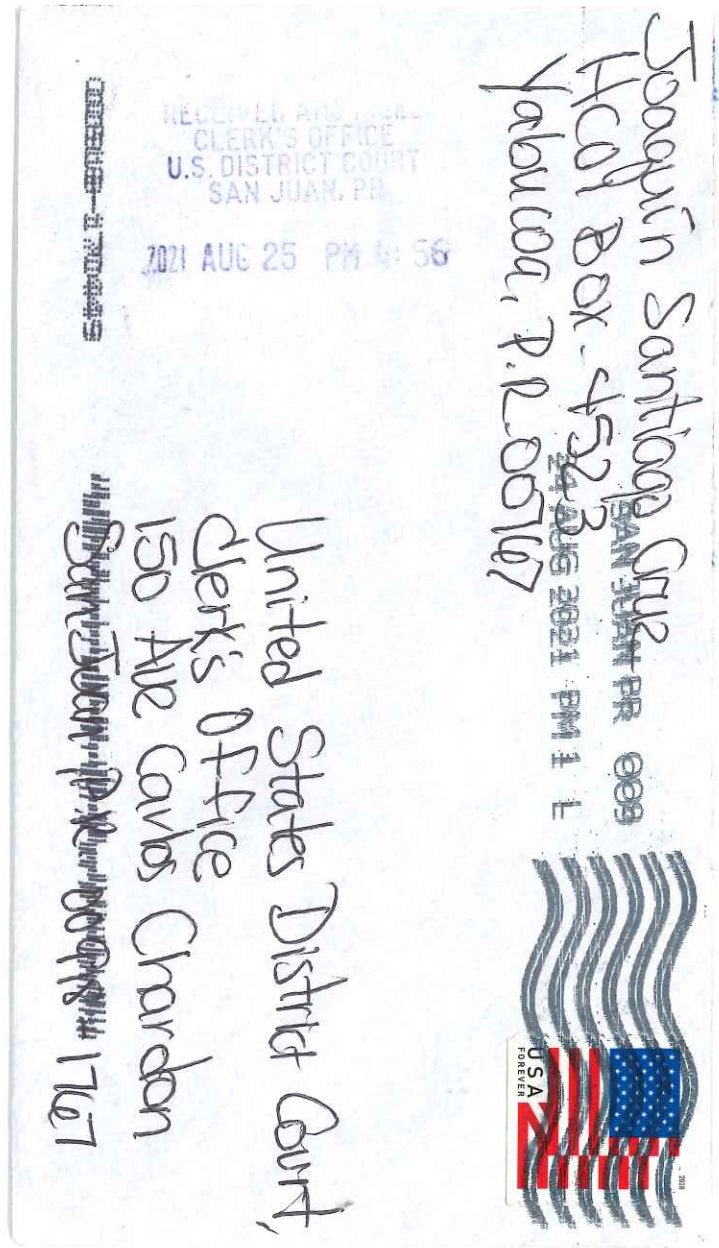 Joaquín Santiago Cruz
HC01 Box-4523
Yabucoa, P.R 00767
SAN JUAN PR 009
24 AUG 2021 PM 1 L
USA
FOREVER
2018
RECEIVED AND
CLERK'S OFFICE
U.S. DISTRICT COURT
SAN JUAN, PR
2021 AUG 25 PM 56
United States District Court,
Clerk's Office
150 Ave Carlos Chardon
San Juan P.R 00918 1767